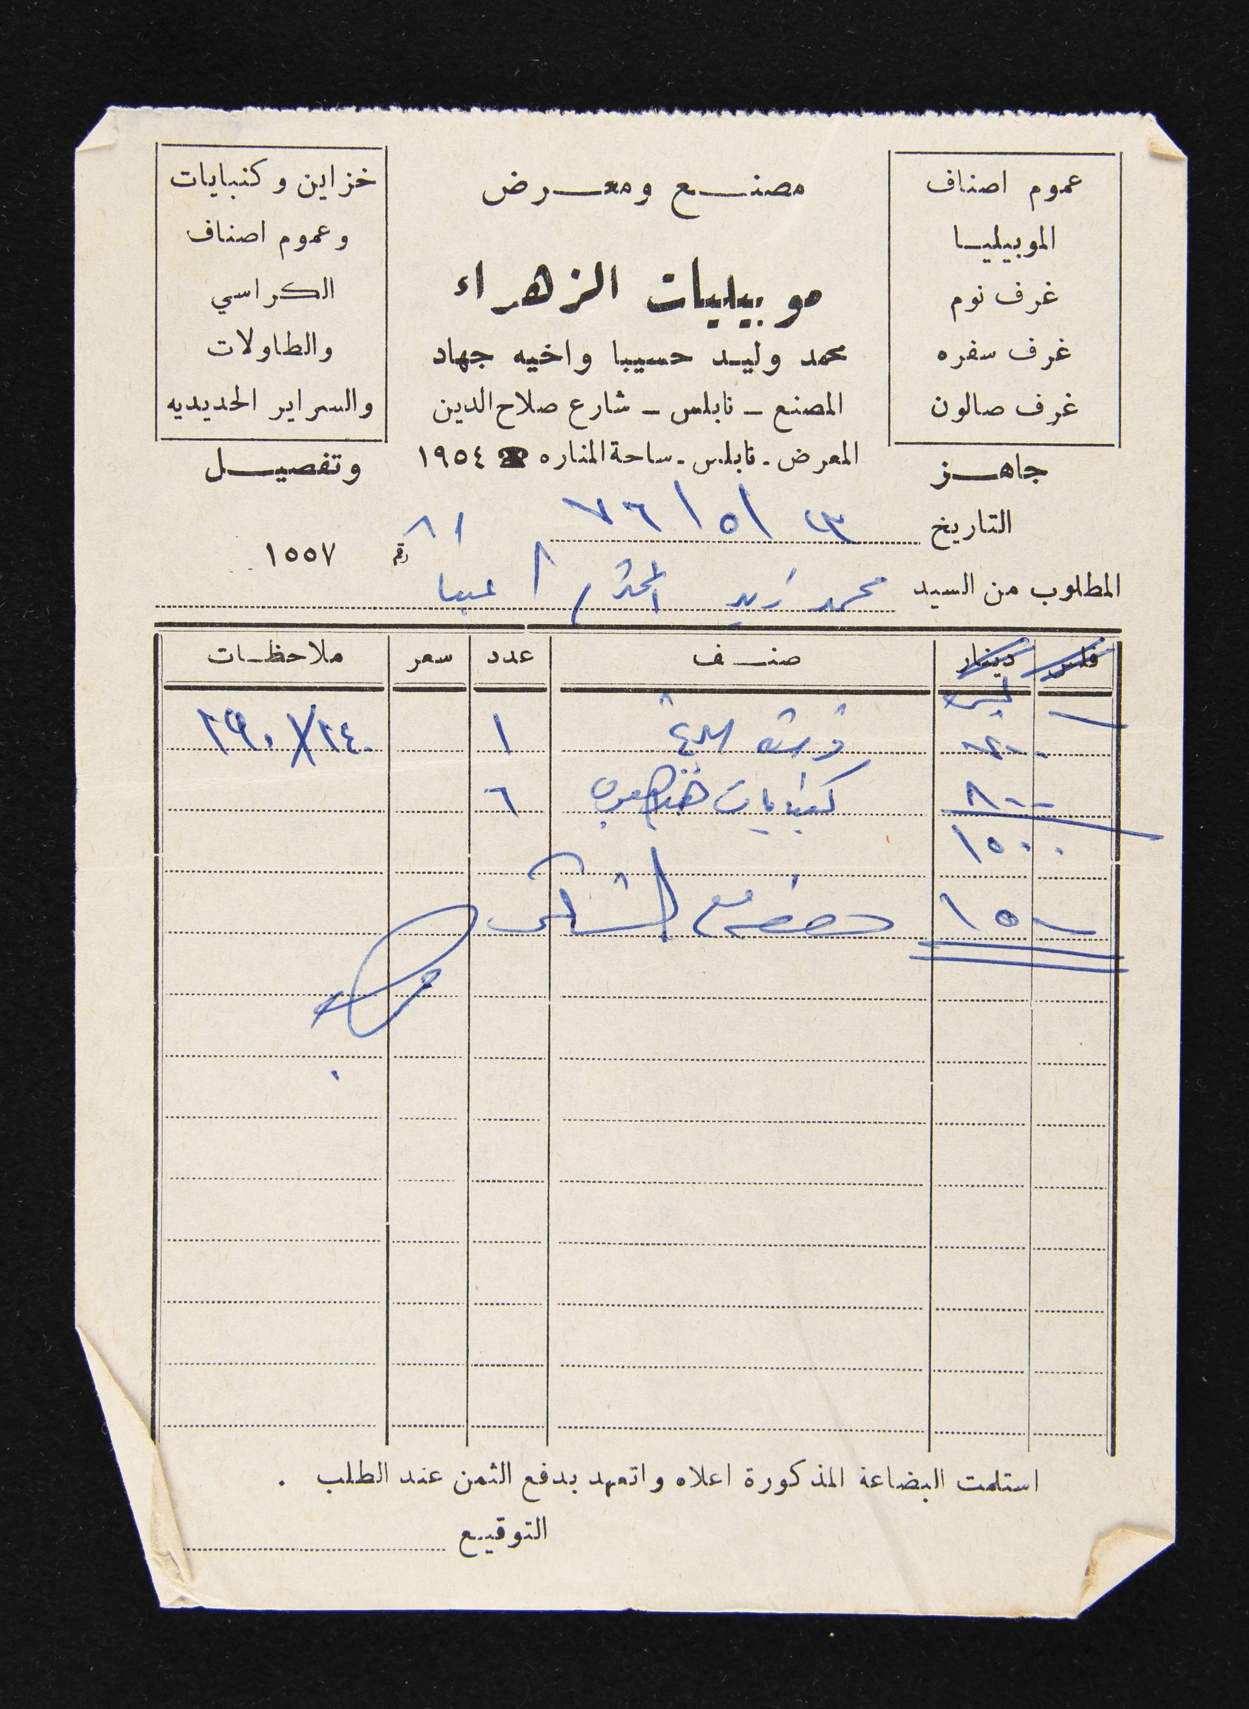 عموم اصناف
الموبيليا
غرف نوم
غرف سفره
غرف صالون
جاهز
مصنع ومعرض
موبيليات الزهراء
محمد وليد حسيبا واخيه جهاد
المصنع - نابلس - شارع صلاح الدين
المعرض - نابلس - ساحة المناره ☎ ١٩٥٤
خزاين وكنبايات
وعموم اصناف
الكراسي
والطاولات
والسراير الحديديه
وتفصيل
التاريخ ٧٦/٥/
رقم ١٥٥٧
المطلوب من السيد محمد زيد المحترم
فلس دينار صنف عدد سعر ملاحظات
١ ٢٤٠ × ٢٩٠
٨٠٠ كنبايات ٦
١٥٠٠
١٥٠٠ مع الشكر
استلمت البضاعة المذكورة اعلاه واتعهد بدفع الثمن عند الطلب .
التوقيع